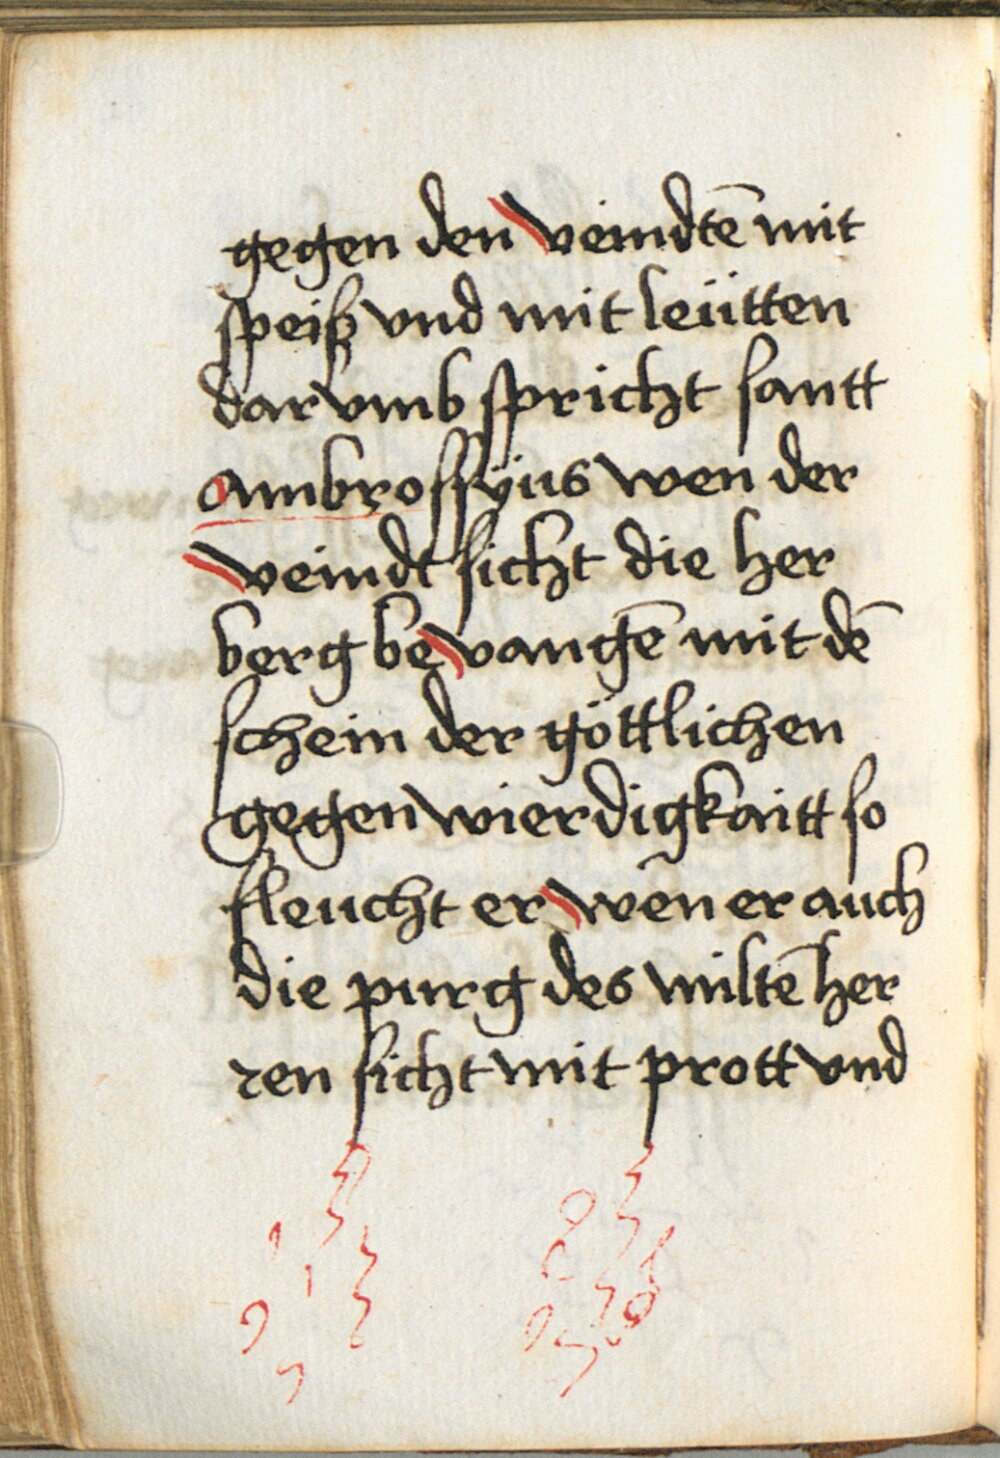 gegen den veindtē mit
speiß vnd mit leütten
darvmb spricht santt
ambrossyus wen der
veindt sicht die her
berg bevangē mit dē
schein der göttlichen
gegenwierdigkaitt so
fleucht er wēn er auch
die purg des miltē her
ren sicht mit prott vnd